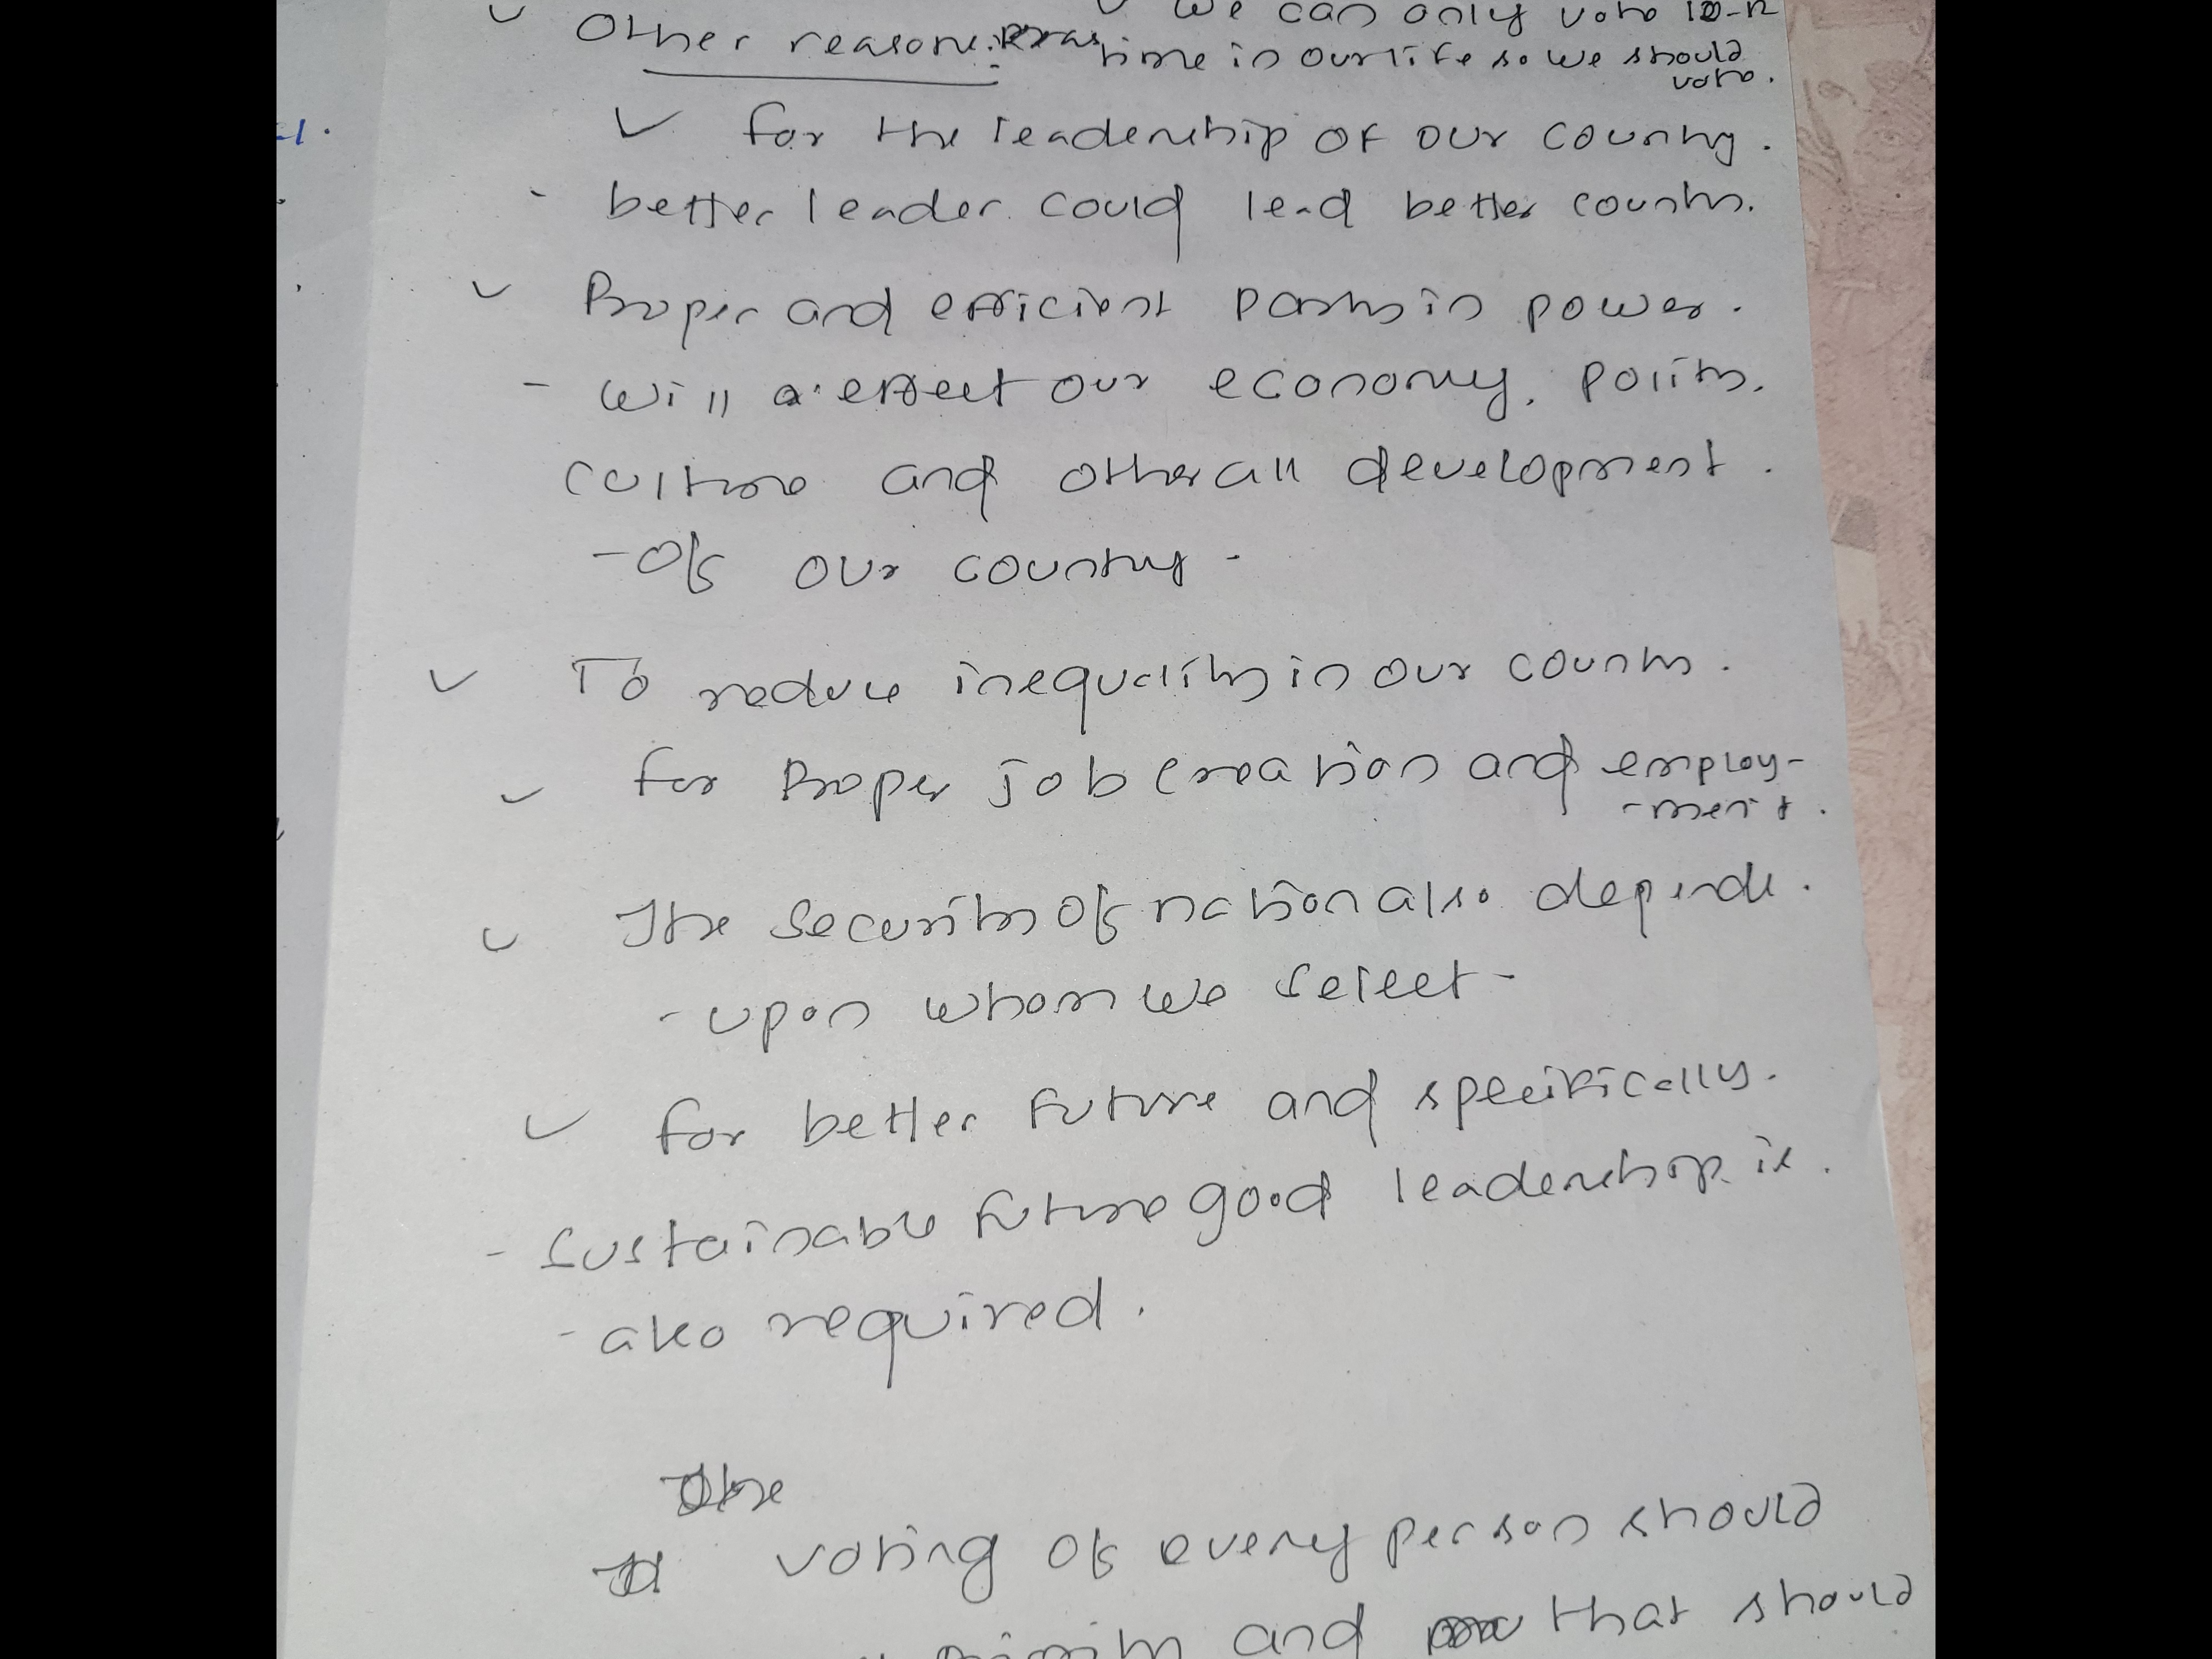 ✓ We can only vote 10-12
✓ Other reasons:
time in our life so we should
vote.
✓ for the leadership of our country.
- better leader could lead better country.
✓ Proper and efficient party in power.
- will effect our economy, polity,
culture and other all development.
- of our country -
✓ To reduce inequality in our country.
✓ for Proper job creation and employ-
-ment.
✓ The security of nation also depends.
- upon whom we select -
✓ for better future and specifically.
- sustainable future good leadership is.
- also required.
The
voting of every person should
and that should